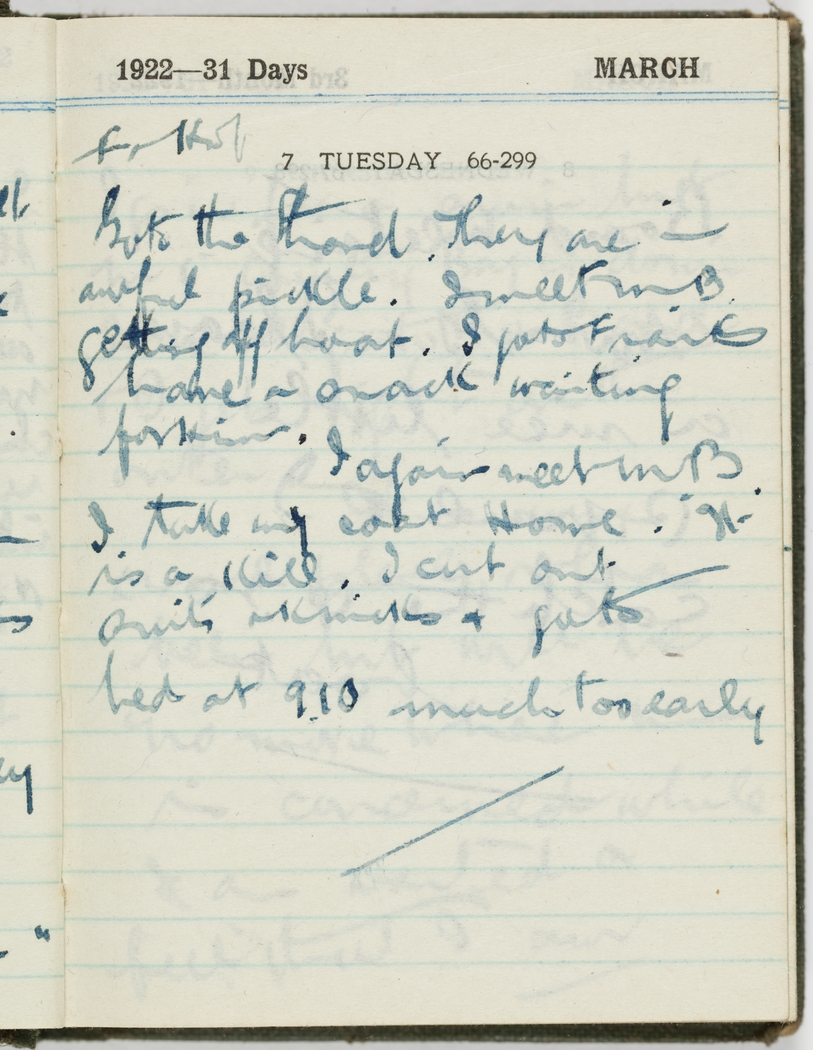 1922—31 Days MARCH
7 TUESDAY 66-299
Go to the Strand. They are in
awful pickle. I meet Mr B.
getting off boat. I go to Frank's
have a snack waiting
for him.
I again meet Mr B.
I take my coat Home. "It
is a Kill. I cut out
suits & knicks & go to
bed at 9.10 much too early